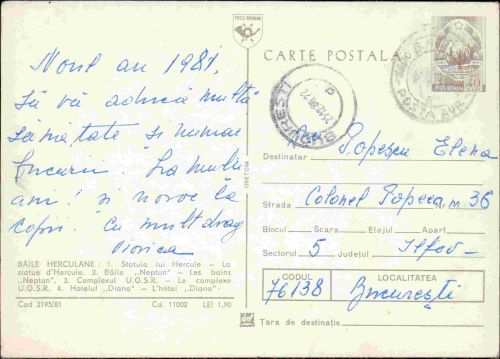 POȘTA ROMÂNĂ
CARTE POSTALA
POȘTA ROMÂNĂ
BUCUREȘTI
Noul an 1981,
să vă aducă multă
sănătate și numai
bucurii. La mulți
ani! și noroc la
copii. Cu mult drag
Viorica
BĂILE HERCULANE: 1. Statuia lui Hercule – La
statue d'Hercule. 2. Băile „Neptun" – Les bains
„Neptun". 3. Complexul U.G.S.R. – Le complexe
U.G.S.R. 4. Hotelul „Diana" – L'hôtel „Diana".
Cod 3195/81 Cd. 11002 LEI 1,90
Destinatar Popescu Elena
Strada Colonel Popeea nr. 36
Blocul Scara Etajul Apart
Sectorul 5 Județul Ilfov
CODUL LOCALITATEA
76138 București
Țara de destinație